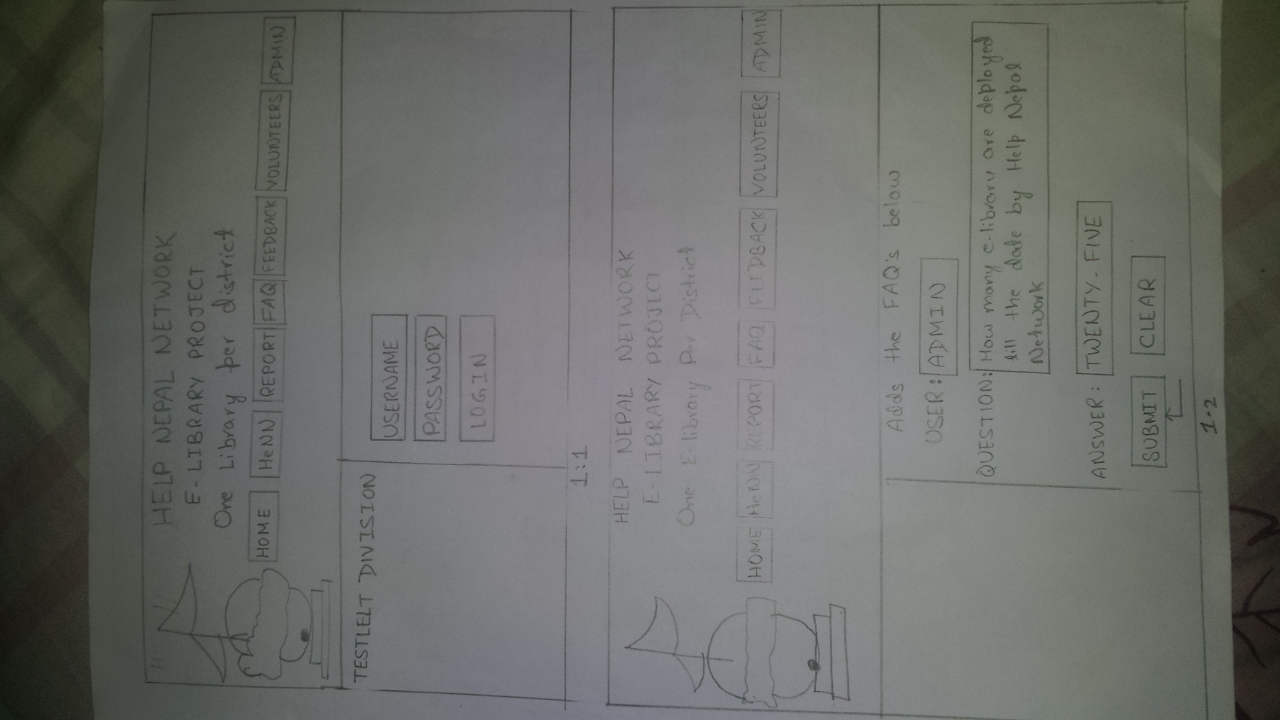 HELP NEPAL NETWORK
E-LIBRARY PROJECT
One Library per district
HOME HeNN REPORT FAQ FEEDBACK VOLUNTEERS ADMIN
TESTLELT DIVISION
USERNAME
PASSWORD
LOGIN
1:1
HELP NEPAL NETWORK
E-LIBRARY PROJECT
One E-library Per District
HOME HeNN REPORT FAQ FEEDBACK VOLUNTEERS ADMIN
Adds the FAQ's below
USER: ADMIN
QUESTION: How many e-library are deployed
till the date by Help Nepal
Network
ANSWER: TWENTY-FIVE
SUBMIT CLEAR
1-2